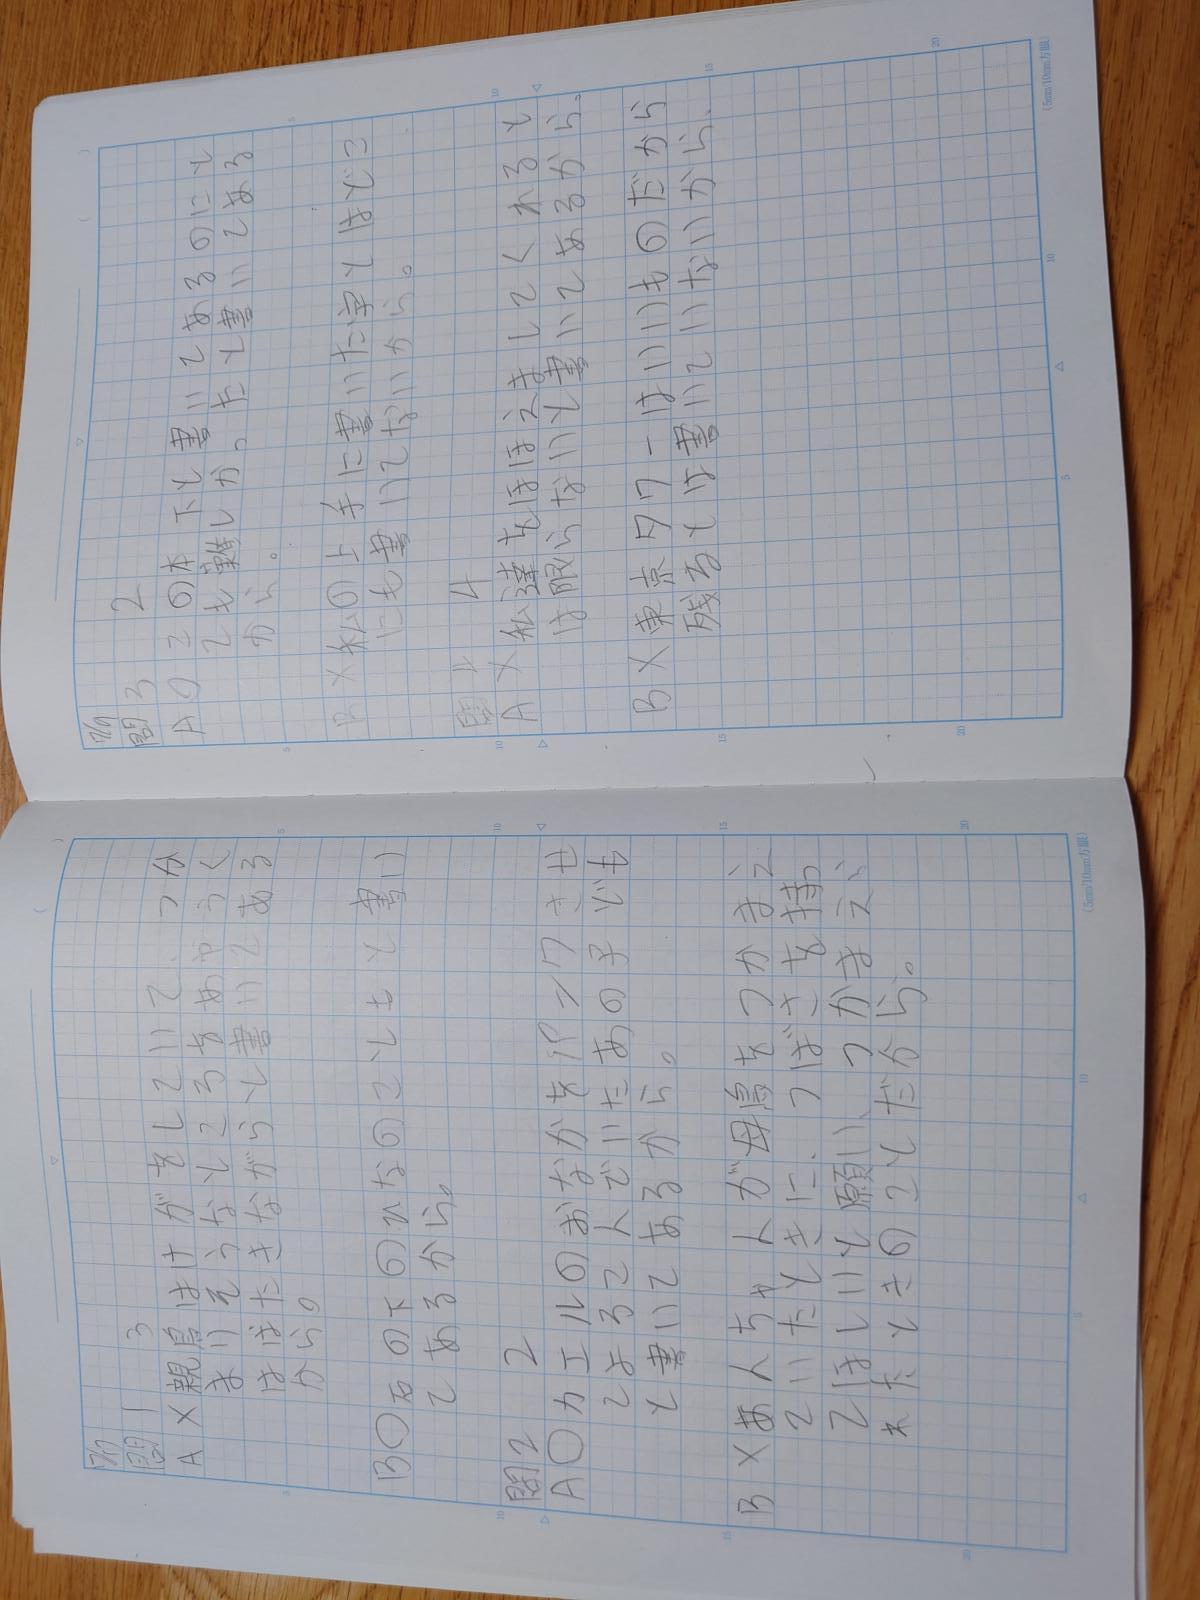 7/7
問1 3
A ×親鳥はけがをしていて、つか
まりそうなところをあやうく
はばたきながらと書いてある
から。
B○右の下のひなのこともと書い
てあるから。
問2 2
A○カエルのおなかをパンクさせ
てよろこんでいたあの子でも
と書いてあるから。
B ×あんちゃんが母鳥をつかまえ
ていたときに、つばさを持っ
てほしいと願い、つかまえら
れたときのことだから。
5 10 15 20
(5mm/10mm方眼)
7/9
問3 2
A○この本下と書いてあるのにと
ても難しかったと書いてある
から。
B ×私の上手に書いた字とはどこ
にも書いてないから。
問4 4
A ×私達をほほえましてくれると
は限らないと書いてあるから。
B ×東京タワーはいいものだから
残るとは書いていないから、
5 10 15 20
(5mm/10mm方眼)